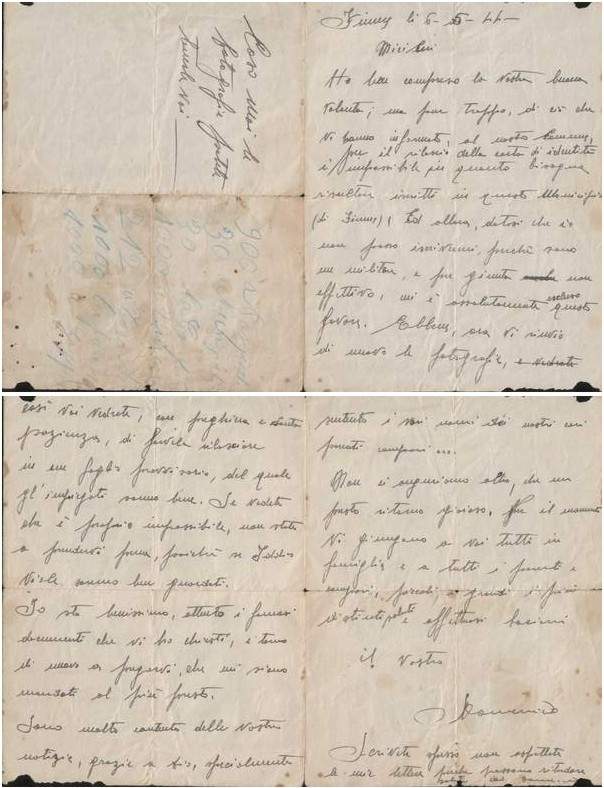 Fiume li 6-5-44-
Miei cari
Ho ben compreso la vostra buona
volontà; ma pur troppo, di ciò che
vi hanno informato, al nostro Comune,
per il rilascio della carta di identità
è impossibile per quanto bisogna
risultare iscritti in questo Municipio
(di Fiume), Ed allora, datosi che io
non posso iscrivermi, perchè sono
un militare, e per giunta non
effettivo, mi è assolutamente escluso questo
favore. Ebbene, ora vi rinvio
di nuovo le fotografie, e vedrete
così voi vedrete, con preghiera e santa
pazienza, di farvela rilasciare
in un foglio provvisorio, del quale
gl'impiegati sanno bene. Se vedete
che è proprio impossibile, non state
a prendervi pena, poichè se Iddio
vuole saremo ben guardati.
Io sto benissimo, attento i famosi
documenti che vi ho chiesti, e torno
di nuovo a pregarvi, che mi siano
mandati al più presto.
Sono molto contento delle vostre
notizie, grazie a Dio, specialmente
sentito i vari nomi dei nostri cari
paesani
Non ci auguriamo altro, che un
presto ritorno gioioso, Per il momento
Vi giungano a voi tutti in
famiglia e a tutti i parenti e
compari, piccoli e grandi i più
distinti saluti e affettuosi bacioni
il Vostro
Domenico
Scrivete spesso non aspettate
le mie lettere perche possono ritardare
Caso mai le
fotografie fatele
tutte voi